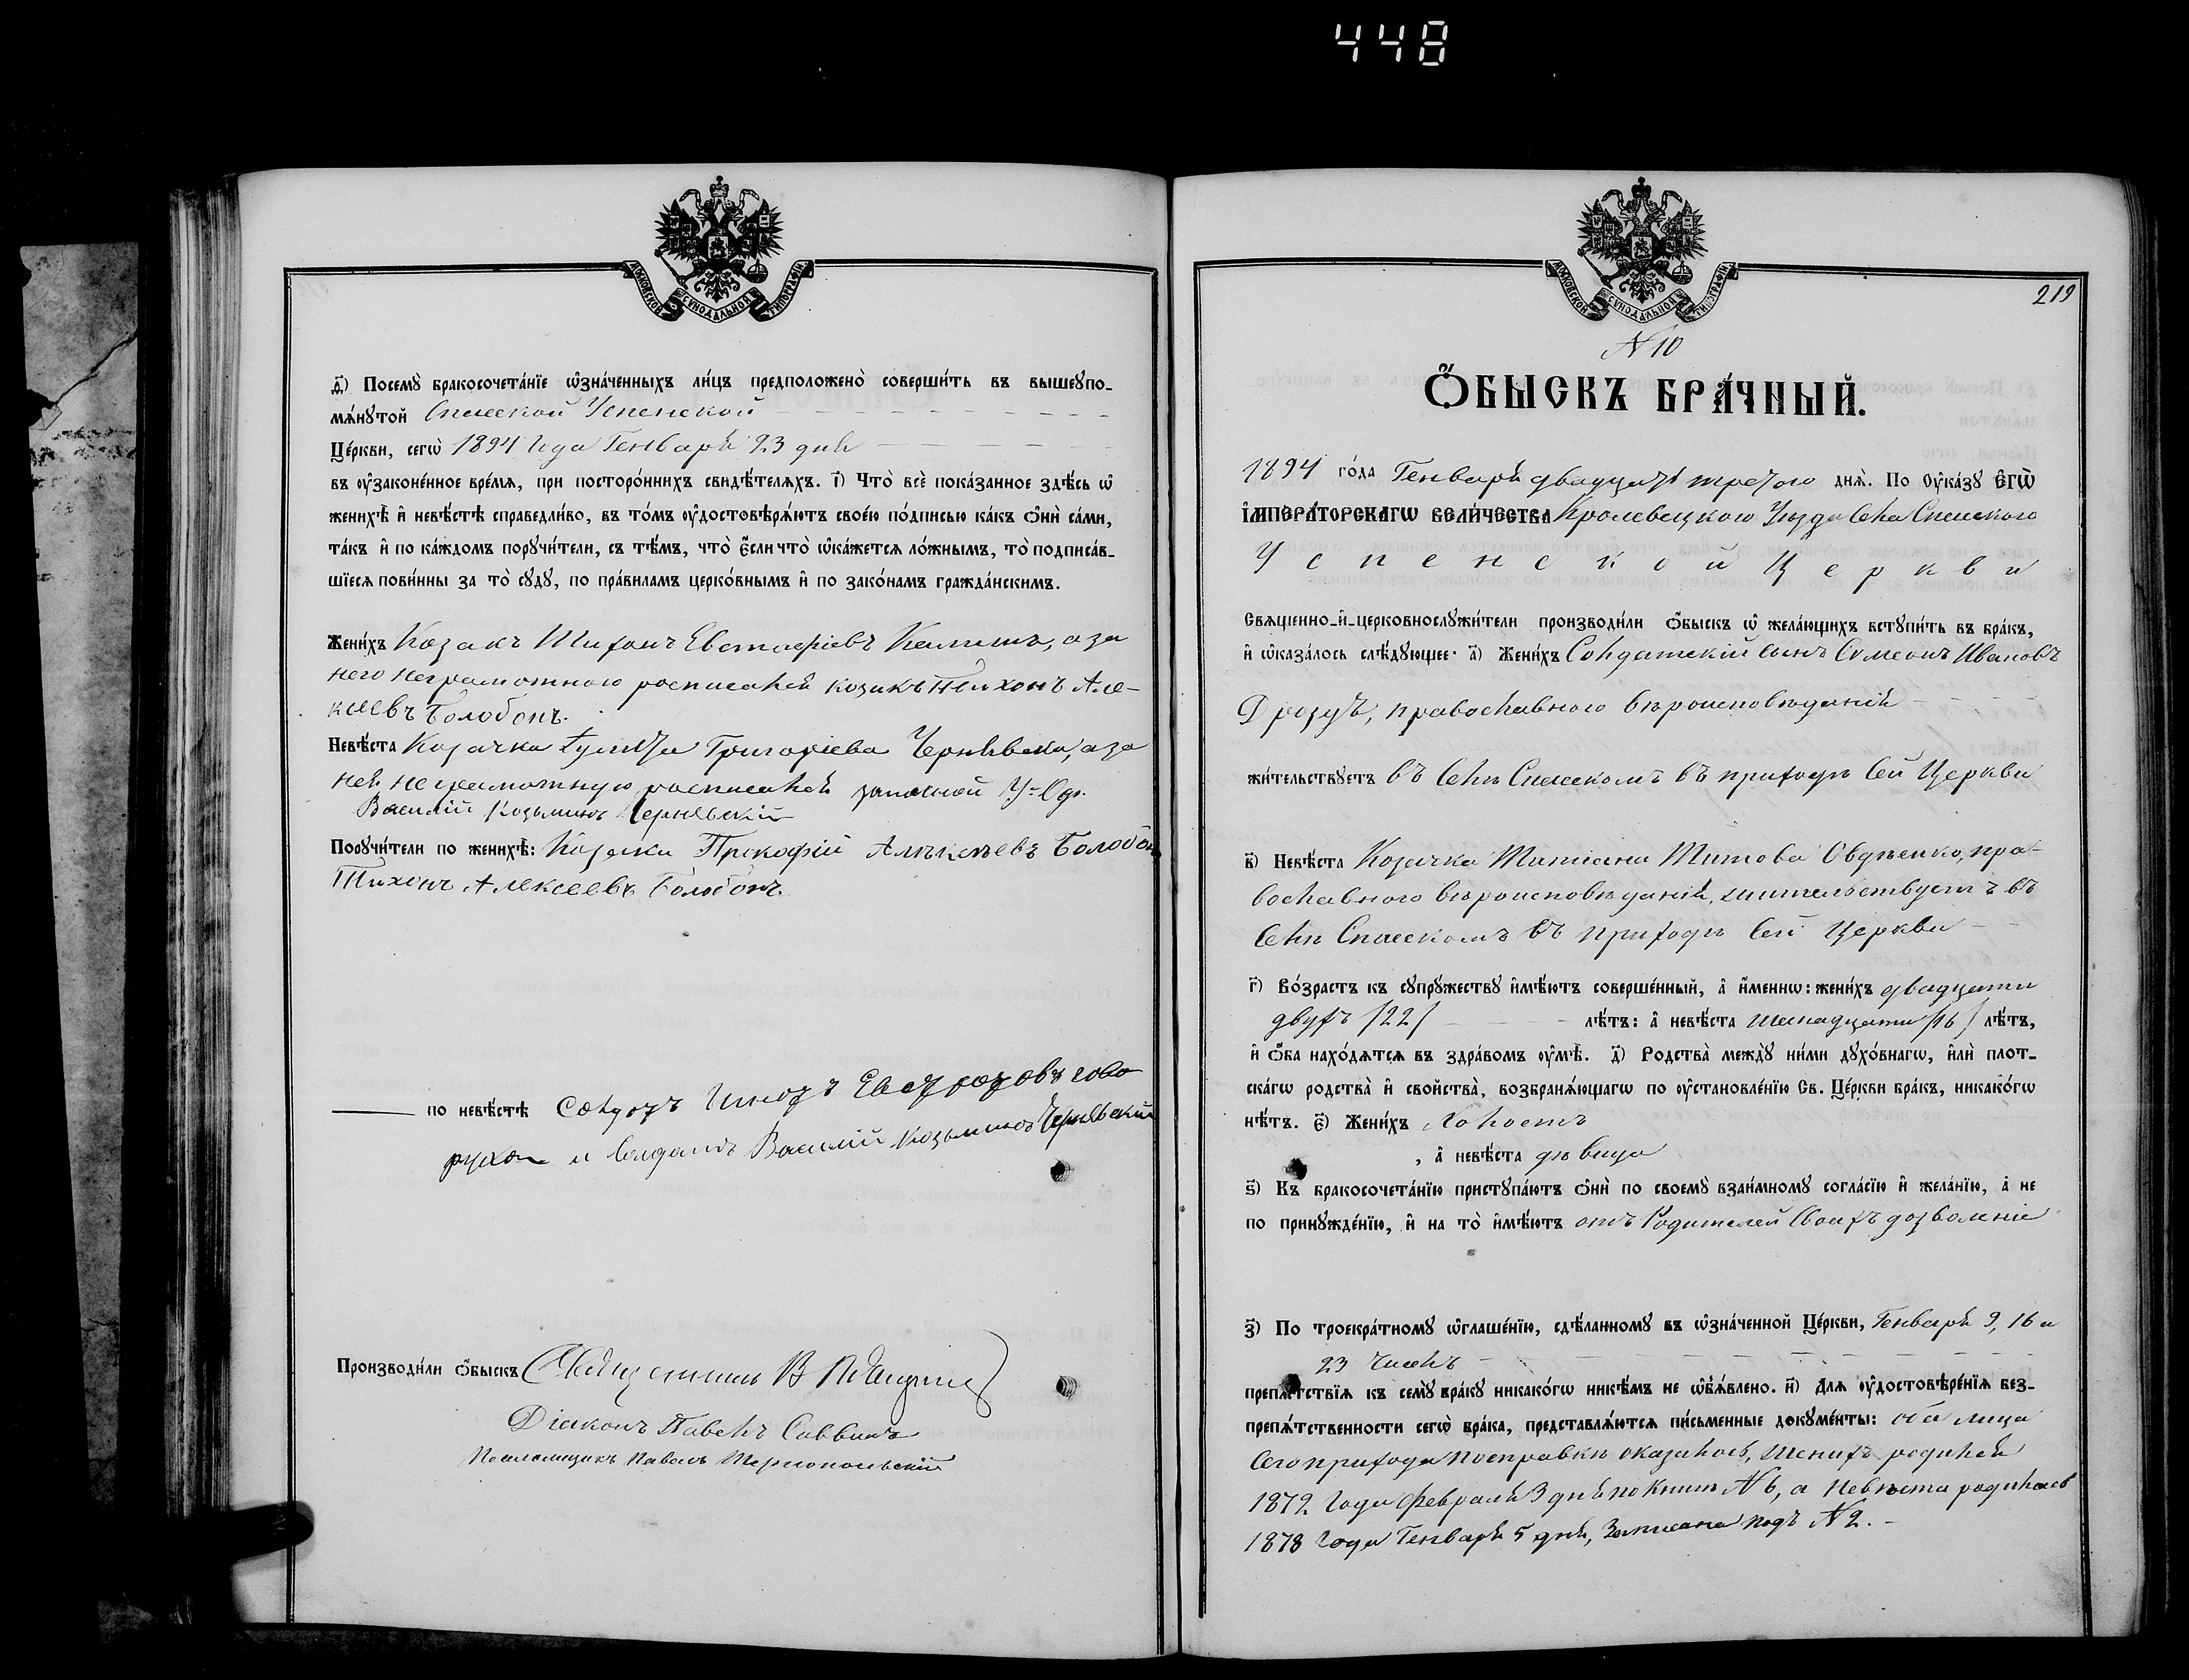 448
МОСКОВСКОЙ СѴНОДАЛЬНОЙ ТИПОГРАФІИ
д҃і) Посемꙋ̀ бракосочета́нїе ѡ҆зна́ченныхъ ли́цъ предположено̀ соверши́ть въ вышеꙋпо-
мѧ́нꙋтой Спасской Успенской
Це́ркви, сегѡ̀ 1894 Года Генваря 23 дня
въ ᲂу҆законе́нное вре́мѧ, при посторо́ннихъ свидѣ́телѧхъ. і҃) Что̀ всѐ пока́занное здѣ́сь ѡ҆
женихѣ̀ и҆ невѣ́стѣ справедли́во, въ то́мъ ᲂу҆достовѣрѧ́ютъ свое́ю по́дписью ка́къ ѻ҆нѝ са́ми,
та́къ и҆ по ка́ждомъ порꙋчи́тели, съ тѣ́мъ, что̀ є҆́сли что̀ ѡ҆ка́жетсѧ ло́жнымъ, то̀ подписа́в-
шїесѧ пови́нны за то̀ сꙋдꙋ̀, по пра́виламъ церко́внымъ и҆ по зако́намъ гражда́нскимъ.
Жени́хъ Козакъ Тихонъ Евстафіевъ а за
него неграмотного росписался козакъ Тихонъ Але-
ксеевъ Болобонъ.
Невѣ́ста Козачка Григоріева Чернявска, а за
нея неграмотную росписался запасной У-Оф.
Василій Козьминъ Чернявскій
Порꙋчи́тели по женихѣ̀: Козаки Прокофій Алѣксѣевъ Болобонъ
Тихонъ Алексеевъ Болобонъ.
по невѣ́стѣ Солдатъ
и Солдатъ Василій Козьминъ Чернявскій
Производи́ли ѻ҆́быскъ Священникъ В
Діаконъ Павелъ Саввинъ
Псаломщикъ Павелъ Тернопольскій
МОСКОВСКОЙ СѴНОДАЛЬНОЙ ТИПОГРАФІИ
219
N 10
Ѻ҆́БЫСКЪ БРА́ЧНЫЙ.
1894 го́да Генваря двадцать третого днѧ̀. По ᲂу҆ка́зꙋ Є҆ГѠ̀
І҆МПЕРА́ТОРСКАГѠ ВЕЛИ́ЧЕСТВА Кролевецкого Уѣзда Села Спасского
Успенской Церкви
Свѧще́нно-и҆-церковнослꙋжи́тели производи́ли ѻ҆́быскъ ѡ҆ жела́ющихъ встꙋпи́ть въ бра́къ,
и҆ ѡ҆каза́лось слѣ́дꙋющее: а҃) Жени́хъ Солдатскій сынъ Симеонъ Ивановъ
Дроздъ, православного вѣроисповѣданія
жи́тельствꙋетъ въ Селѣ Спасскомъ въ приходѣ Сей Церкви
в҃) Невѣ́ста Козачка Татіана Титова Овдѣенко, пра-
вославного вѣроисповѣданія, жительствуетъ въ
Селѣ Спасскомъ въ приходѣ Сей Церкви
г҃) Во́зрастъ къ сꙋпрꙋ́жествꙋ и҆мѣ́ютъ соверше́нный, а҆ и҆́меннѡ: жени́хъ двадцати
двухъ /22/ лѣ́тъ: а҆ невѣ́ста шестнадцати /16/ лѣ́тъ,
и҆ ѻ҆́ба нахо́дѧтсѧ въ здра́вомъ ᲂу҆мѣ̀. д҃) Родства̀ междꙋ̀ ни́ми дꙋхо́внагѡ, и҆лѝ плот-
ска́гѡ родства̀ и҆ сво́йства̀, возбранѧ́ющагѡ по ᲂу҆становле́нїю Св. Це́ркви бра́къ, никако́гѡ
нѣ́тъ. є҃) Жени́хъ Холостъ
, а҆ невѣ́ста дѣвица
ѕ҃) Къ бракосочета́нїю пристꙋпа́ютъ ѻ҆нѝ по своемꙋ̀ взаи́мномꙋ согла́сїю и҆ жела́нїю, а҆ не
по принꙋжде́нїю, и҆ на то̀ и҆мѣ́ютъ отъ Родителей Своихъ дозволеніе
з҃) По троекра́тномꙋ ѡ҆глаше́нїю, сдѣ́ланномꙋ въ ѡ҆зна́ченной Це́ркви, Генваря 9, 16 и
23 чиселъ
препѧ́тствїѧ къ семꙋ̀ бра́кꙋ никако́гѡ никѣ́мъ не ѡ҆б̾ѧ́влено. и҃) Длѧ ᲂу҆достовѣре́нїѧ без-
препѧ́тственности сегѡ̀ бра́ка, представлѧ́ютсѧ пи́сьменные докꙋме́нты: оба лица
Сего прихода посправкѣ оказалось, Женихъ родился
1872 Года Февраля 3 дня по книгѣ N 6, а Невѣста родилась
1878 Года Генваря 5 дня, Записана подъ N 2.